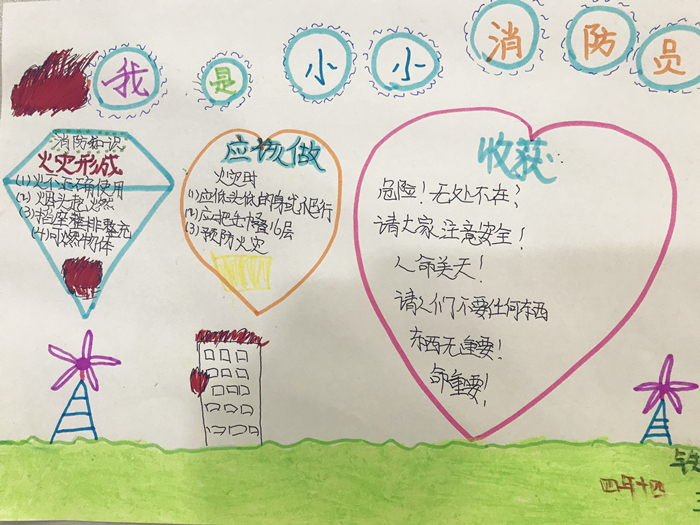 我是小小消防员
消防知识
火灾形成
(1)火不正确使用
(2)烟头
(3)
(4)可燃物体
应该做
火灾时
(1)应低头低的身式爬行
(2)应把
(3)预防火灾
收获
危险!无处不在?
请大家注意安全!
人命关天!
请人们不要任何东西
东西无重要!
命重要!
四年十四